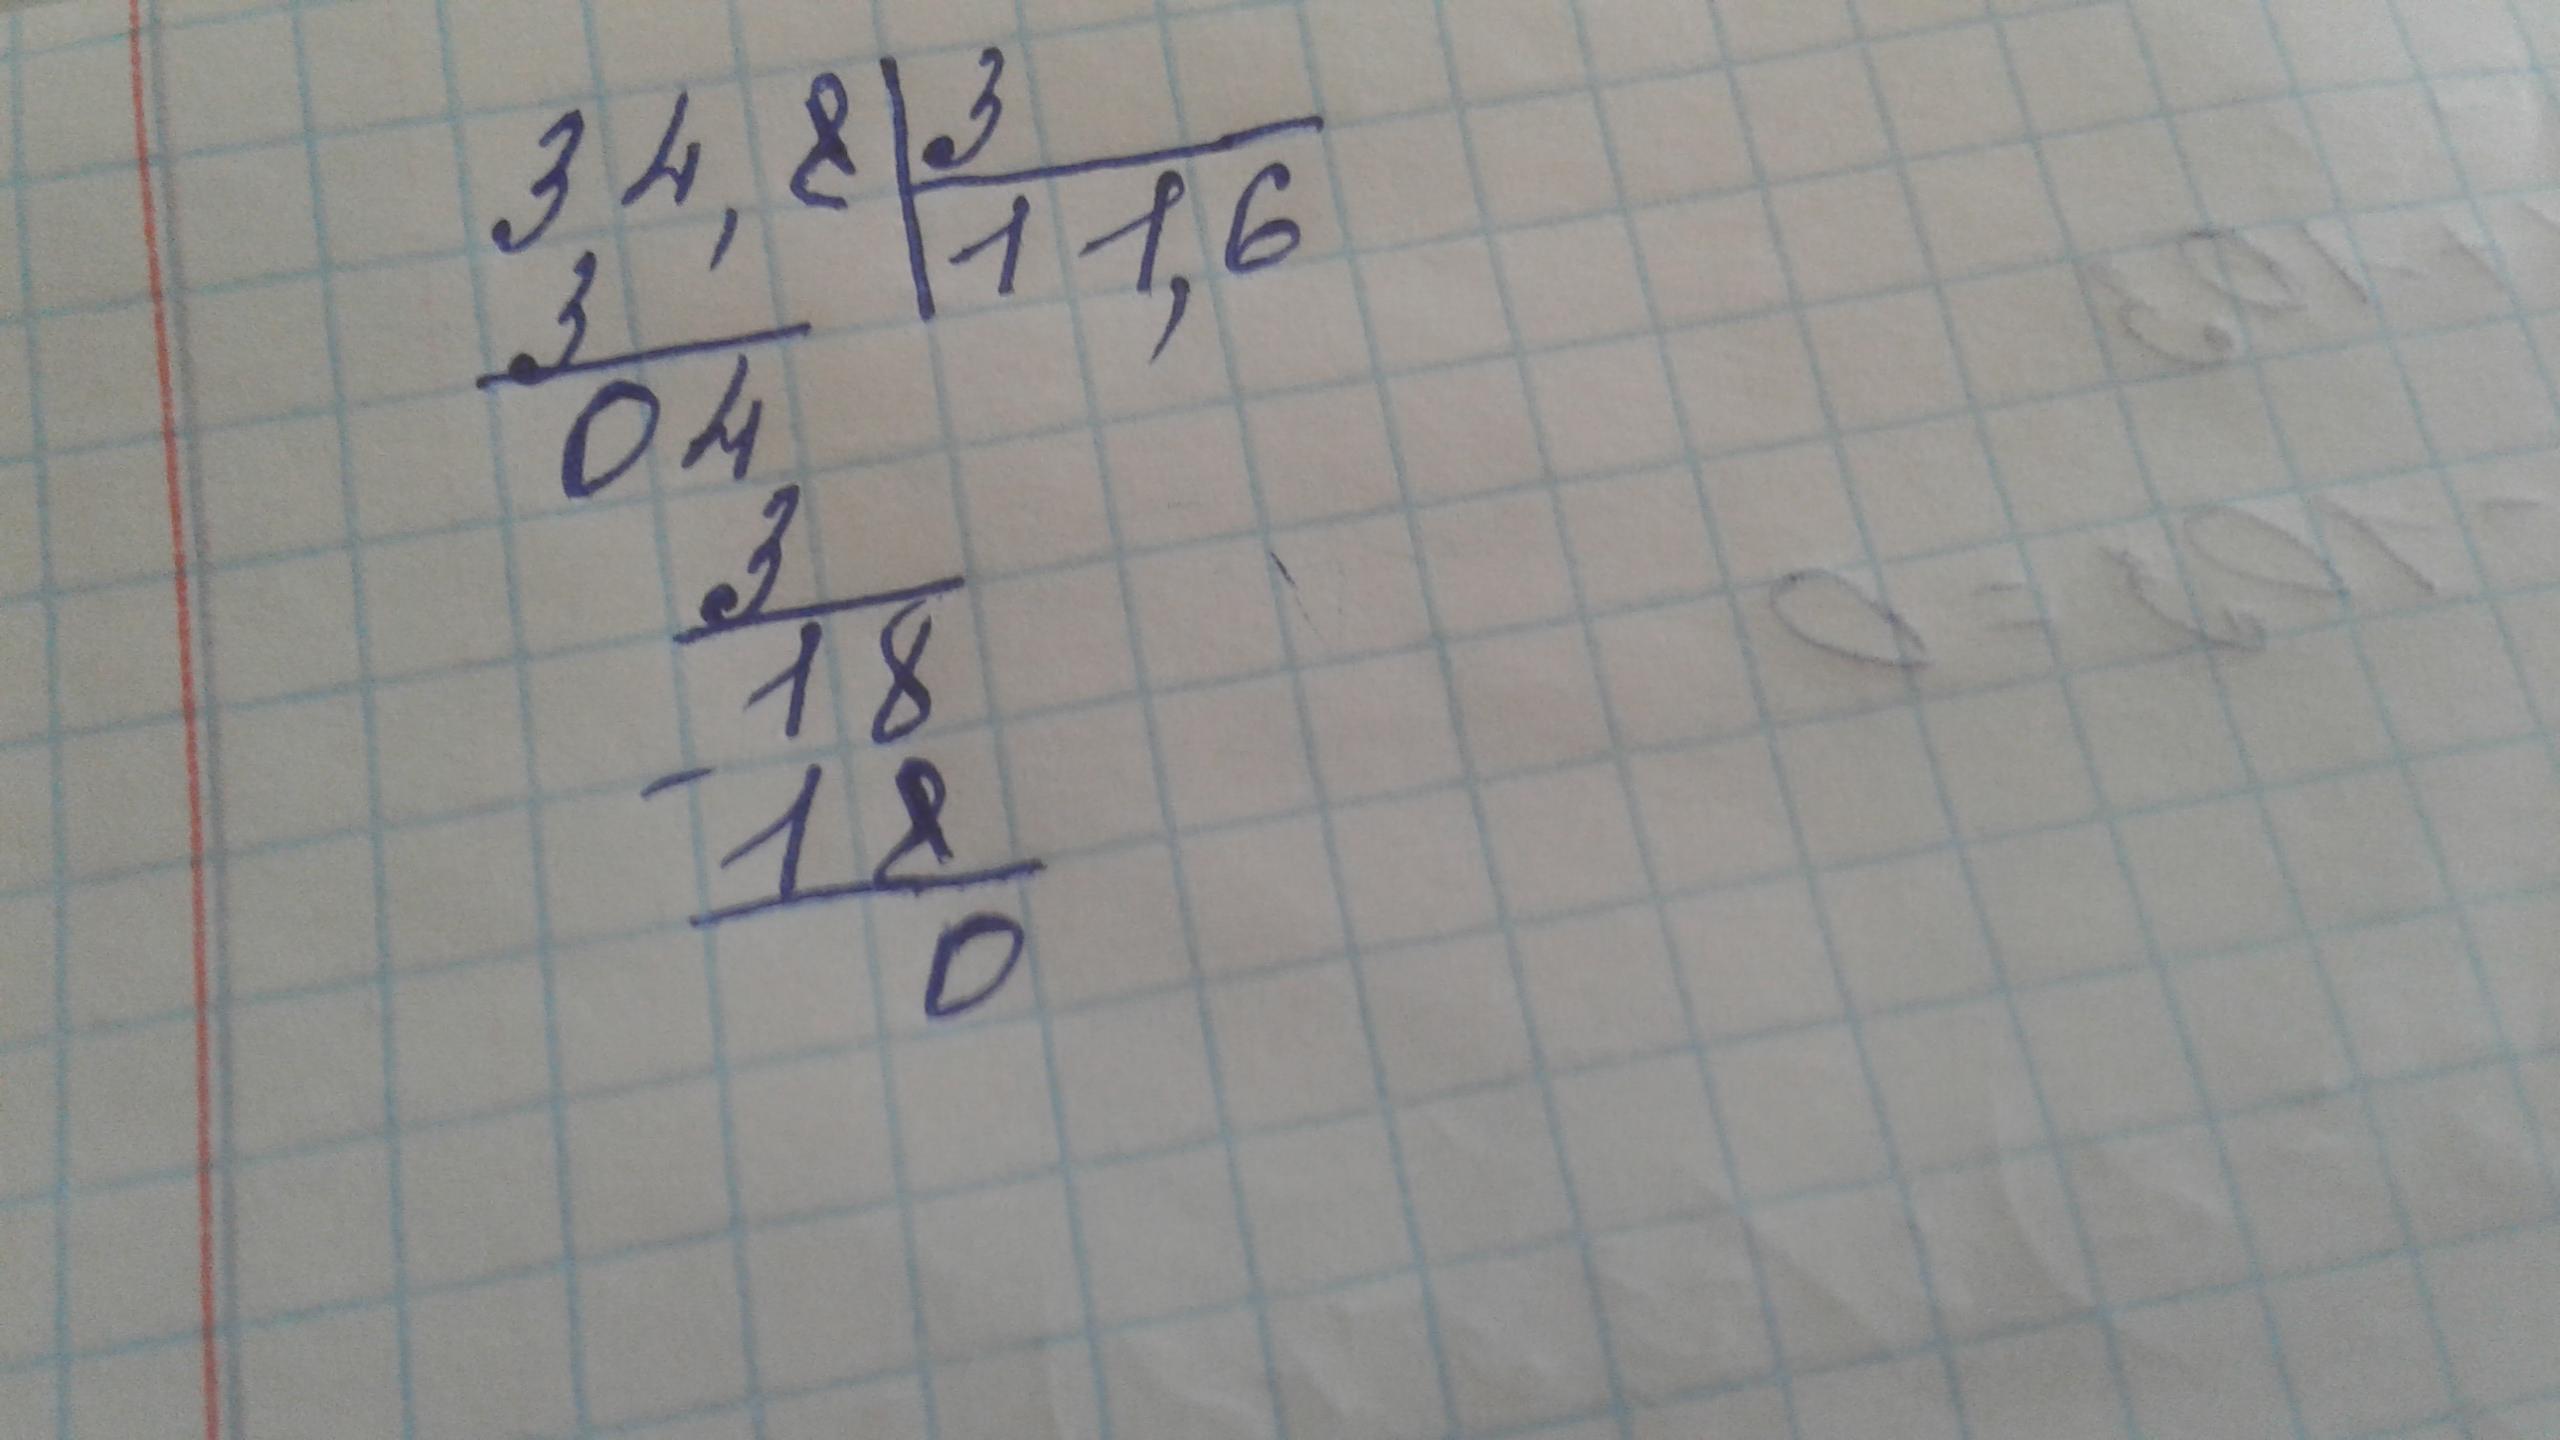 34,8 3
3 11,6
04
3
18
- 18
0